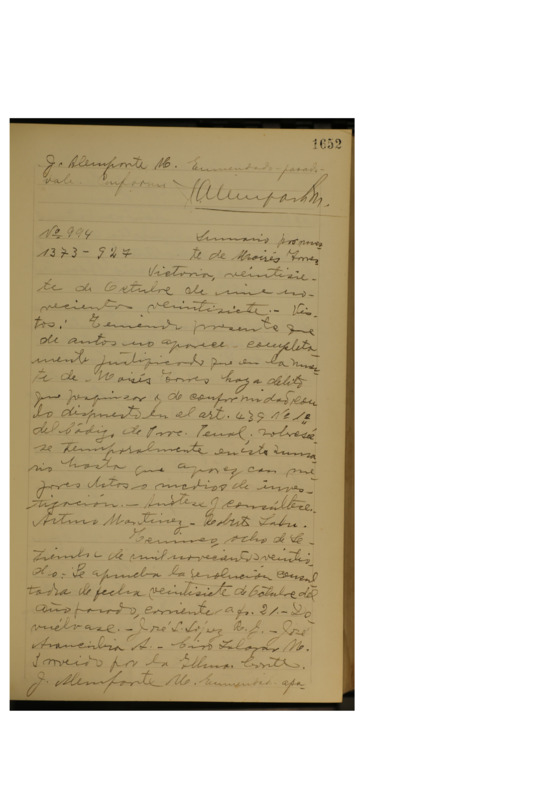 1652
J. Alemparte M. Enmendado - pasado -
vale - Conforme
J Alemparte M.
No 994 Sumario por muer
1373 - 927 te de Moisés Torres
Victoria, veintisie-
te de Octubre de mil no-
vecientos veintisiete. - Vis-
tos: Teniendo presente que
de autos no aparece completa-
mente justificado que en la muer
te de Moisés Torres haya delito
que pesquisar y de conformidad con
lo dispuesto en el art. 439 No 1o
del Código de Proc. Penal, sobreseé
se temporalmente en este suma
rio hasta que aparezcan me
jores datos o medios de inves-
tigación. - Anótese y consúltese.
Arturo Martínez - Roberto
Temuco, ocho de Se-
tiembre de mil novecientos veintio-
cho. Se aprueba la resolución consul
tada de fecha veintisiete de Octubre del
año pasado, corriente a fs. 21 - De-
vuélvase. - José S. López R. - José
Arancibia A. - Ciro Salazar M.
Proveido por la Iltma. Corte.
J. Alemparte M. Enmendado - apa-